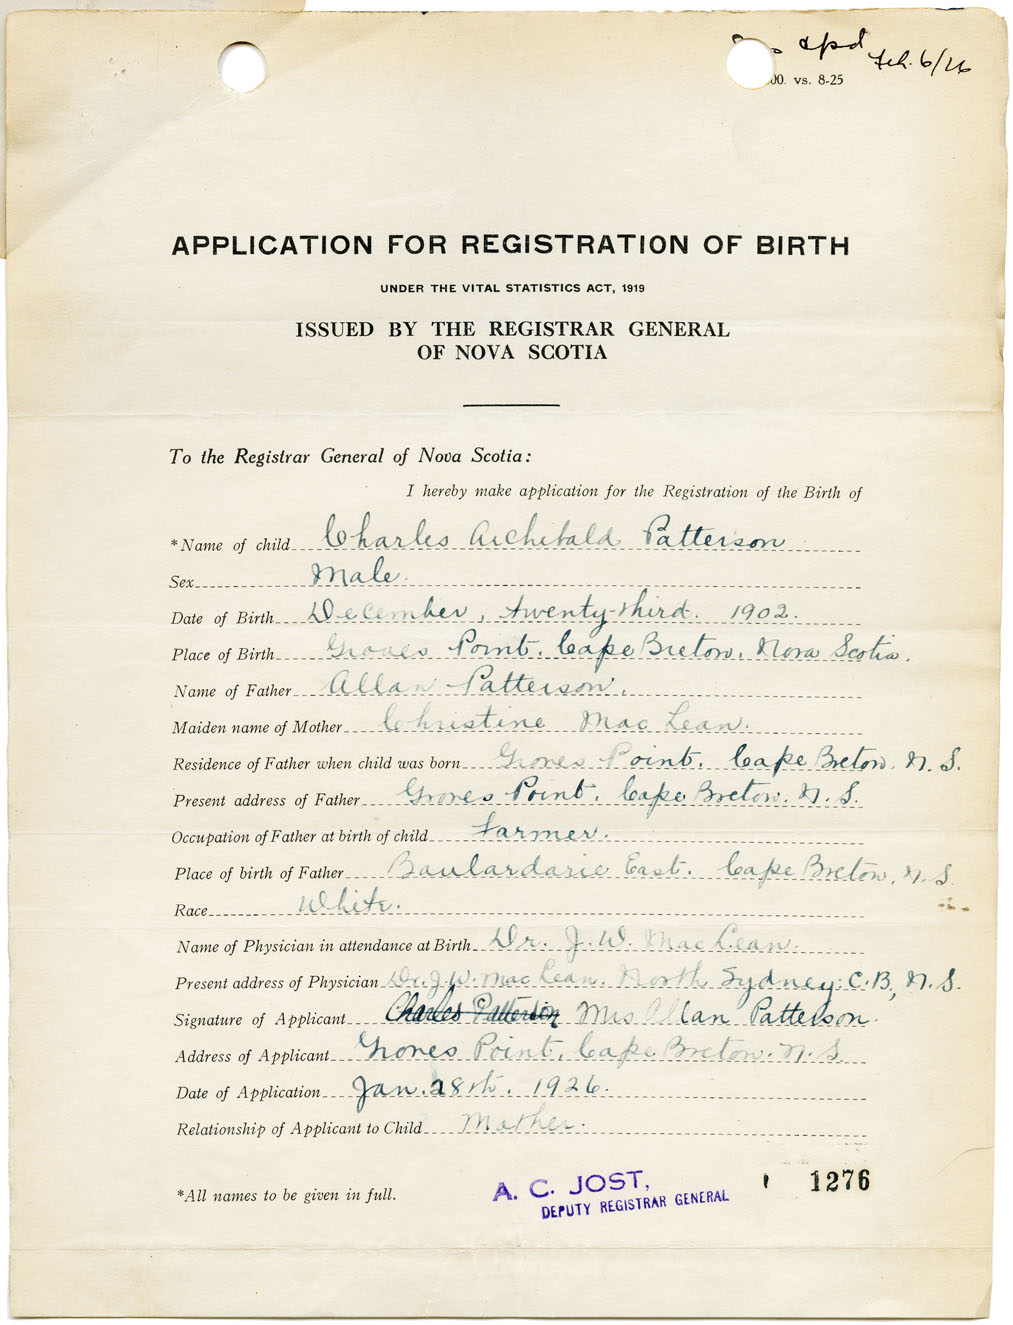 apd Feb. 6/26
00. vs. 8-25
APPLICATION FOR REGISTRATION OF BIRTH
UNDER THE VITAL STATISTICS ACT, 1919
ISSUED BY THE REGISTRAR GENERAL
OF NOVA SCOTIA
To the Registrar General of Nova Scotia:
I hereby make application for the Registration of the Birth of
*Name of child Charles Archibald Patterson
Sex Male.
Date of Birth December, twenty-third. 1902.
Place of Birth Groves Point. Cape Breton. Nova Scotia.
Name of Father Allan Patterson.
Maiden name of Mother Christine Mac Lean.
Residence of Father when child was born Groves Point. Cape Breton. N. S.
Present address of Father Groves Point. Cape Breton. N. S.
Occupation of Father at birth of child Farmer.
Place of birth of Father Boulardarie East. Cape Breton, N. S.
Race White.
Name of Physician in attendance at Birth Dr. J. W. Mac Lean.
Present address of Physician Dr. J. W. Mac Lean. North Sydney. C.B, N. S.
Signature of Applicant Charles Patterson Mrs Allan Patterson.
Address of Applicant Groves Point, Cape Breton. N. S
Date of Application Jan. 28th. 1926.
Relationship of Applicant to Child Mother.
*All names to be given in full.
A. C. JOST,
DEPUTY REGISTRAR GENERAL
1276